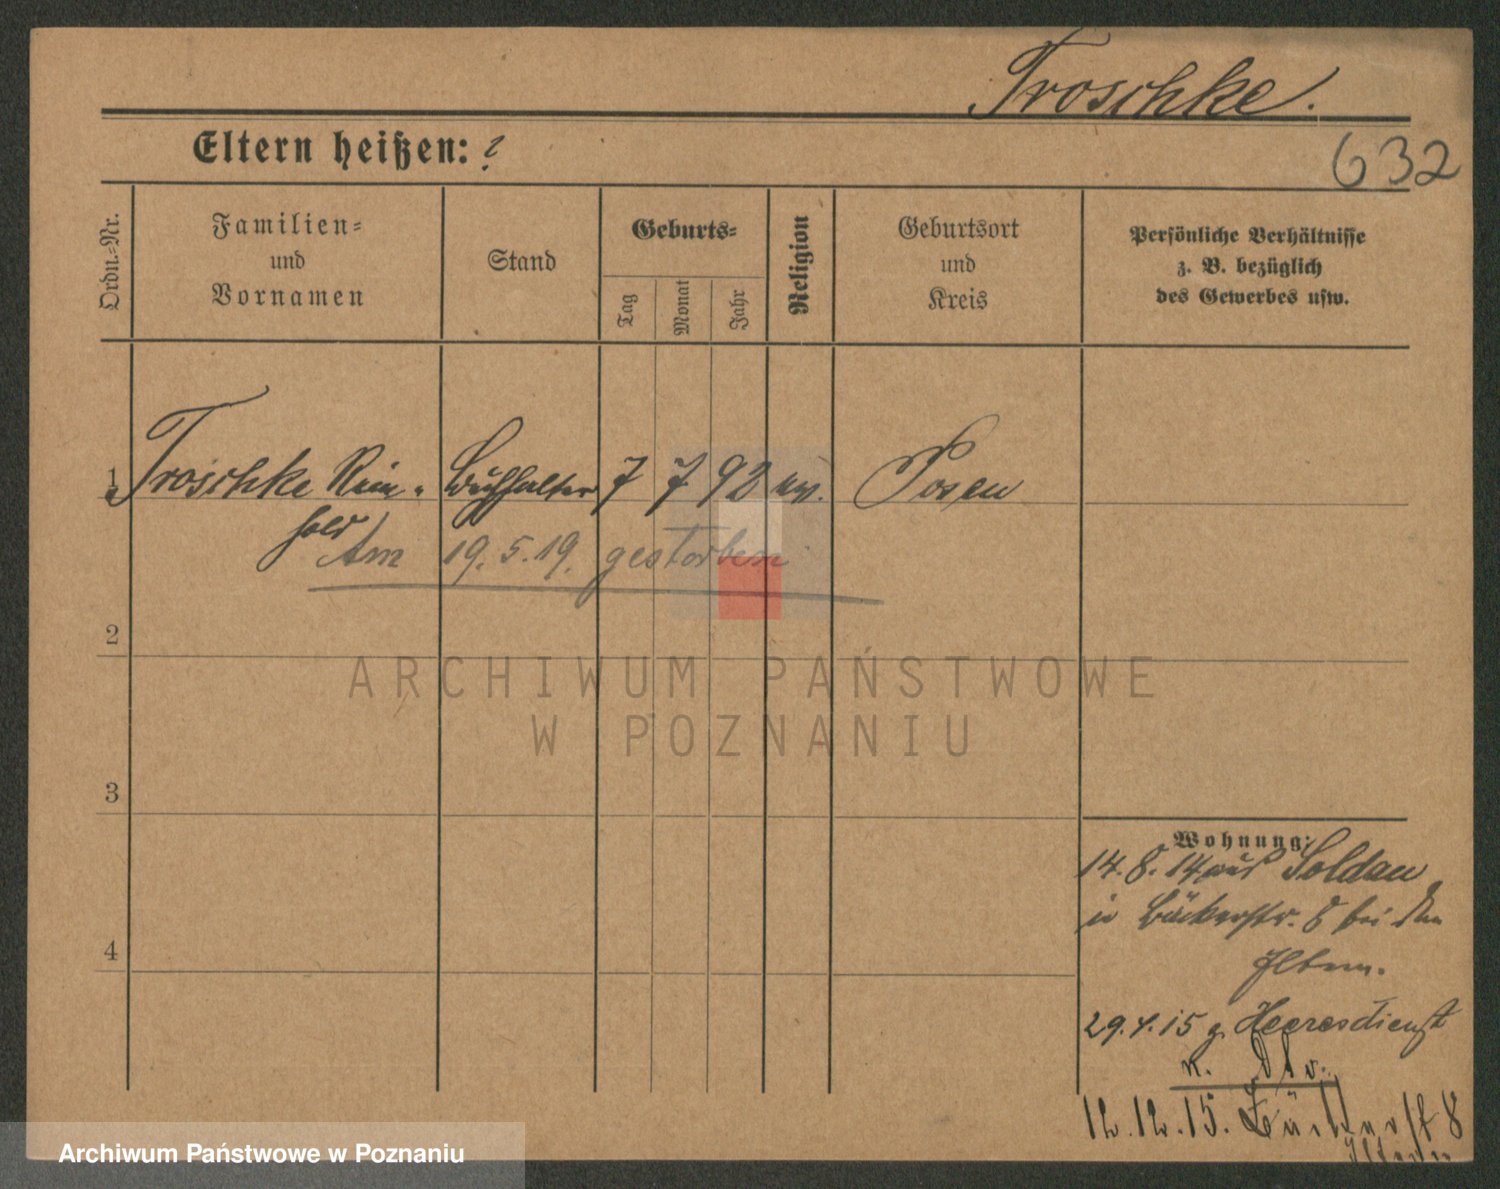 Troschke.
632
Eltern heißen: ?
Ordn.-Nr.
Familien-
und
Vornamen
Stand
Geburts-
Tag
Monat
Jahr
Religion
Geburtsort
und
Kreis
Persönliche Verhältnisse
z. B. bezüglich
des Gewerbes usw.
1 Troschke Rein- Buchhalter 7 7 92 ev. Posen
hold
Am 19.5.19. gestorben
2
3
4
Wohnung:
14.8.14 aus Soldau
in Bäckerstr. 8 bei den
Eltern.
29.4.15 z. Heeresdienst
12.12.15. Bäckerst 8
Eltern
ARCHIWUM PAŃSTWOWE
W POZNANIU
Archiwum Państwowe w Poznaniu